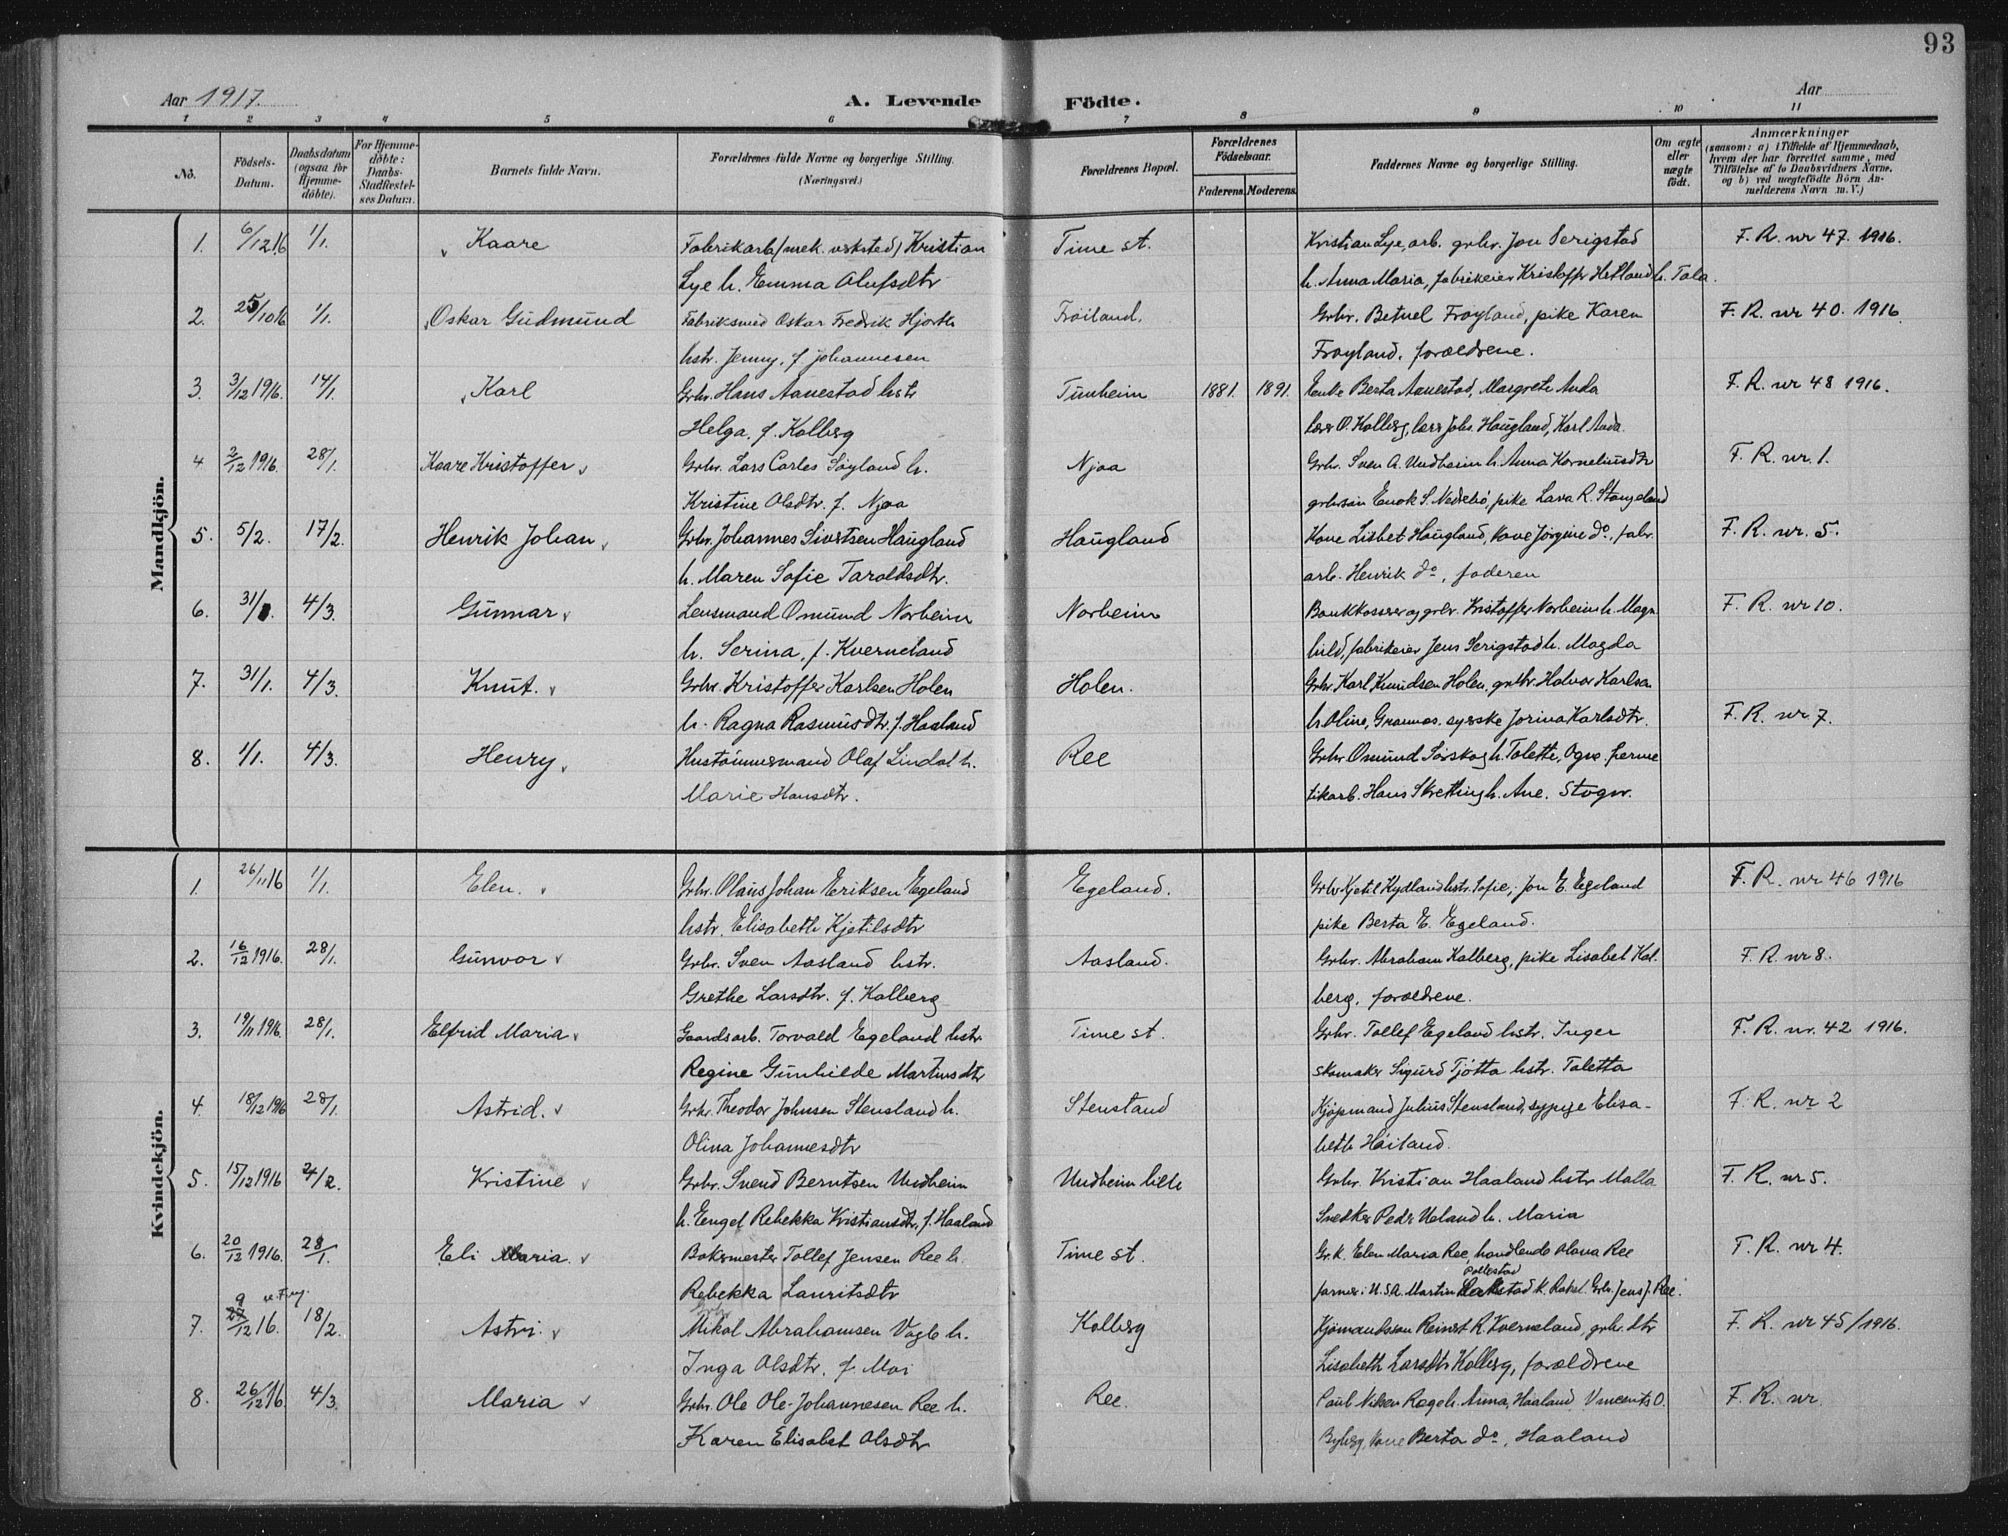 93
Aar 1917.
A. Levende Födte.
Aar
1 2 3 4 5 6 7 8 9 10 11
No.
Födsels-Datum.
Daabsdatum (ogsaa for Hjemmedöbte).
For Hjemmedöbte: Daabs-Stadfæstelses Datum.
Barnets fulde Navn.
Forældrenes fulde Navne og borgerlige Stilling. (Næringsvei.)
Forældrenes Bopæl.
Forældrenes Födselsaar.
Faderens. Moderens.
Faddernes Navne og borgerlige Stilling.
Om ægte eller uægte födt.
Anmærkninger
(saasom: a) i Tilfælde af Hjemmedaab, hvem der har forrettet samme, med Tilföielse af to Daabsvidners Navne, og b) ved uægtefödte Börn Anmelderens Navn m. V.)
Mandkjön.
1. 6/12 16 1/1. Kaare Fabrikarb (mek. verksted) Kristian Time st. Kristian Lye, arb. grbr. Jon Serigstad F. R. nr 47. 1916.
Lye h. Emma Olufsdtr h. Anna Maria, fabrikeier Kristoffr Hetland h. Tala.
2. 25/10 16 1/1. Oskar Gudmund Fabriksmed Oskar Fredrik Hjorth Frøiland. Grbr. Betuel Frøyland, pike Karen F. R. nr 40. 1916.
hstr. Jenny, f. Johannesen Frøyland, forældrene.
3. 3/12 1916. 14/1. Karl Grbr. Hans Aanestad hstr Tunheim 1881. 1891. Enke Berta Aanestad, Margrete Anda F. R. nr 48 1916.
Helga, f. Kalberg Lars O. Kalberg, Johs. Haugland, Karl Anda.
4. 2/12 1916. 28/1. Kaare Kristoffer Grbr. Lars Carles Søyland h. Njaa Grbr. Sven A. Undheim h. Anna Korneliusdtr F. R. nr. 1.
Kristine Olsdtr. f. Njaa grbrsøn Enok S. Nedrebø, pike Lava R. Stangeland
5. 5/2. 17/2. Henrik Johan Grbr. Johannes Sivertsen Haugland Haugland Kone Lisbet Haugland, kone Jørgine do, fabr. F. R. nr. 5.
h. Maren Sofie Taroldsdtr. arb. Henrik do, faderen
6. 31/1. 4/3. Gunnar Lensmand Omund Norheim Norheim Bankkasserer og grbr. Kristoffer Norheim h. Magn F. R. nr 10.
h. Serina, f. Kverneland hild, fabrikeier Jens Serigstad h. Magda
7. 31/1. 4/3. Knut. Grbr. Kristoffer Karlsen Holen Holen. Grbr. Karl Knudsen Holen, grbr. Halvor Karlsen
h. Ragna Rasmusdtr, f. Haaland h. Oline, syerske Jorina Karlsdtr. F. R. nr 7.
8. 1/1. 4/3. Henry Hustømmermand Olaf Lindal h. Ree Grbr. Omund Sørskog h. Talette, Ogne.
Marie Hansdtr. Hans Skretting h. Ane.
Kvindekjön.
1. 26/11 16 1/1. Elen. Grbr. Olaus Johan Eriksen Egeland Egeland. Grbr. Kjetil Kydland hstr. Sofie, Jon E. Egeland F. R. nr 46 1916
hstr. Elisabeth Kjetilsdtr pike Berta E. Egeland.
2. 16/12 1916. 28/1. Gunvor Grbr. Sven Aasland hstr. Aasland. Grbr. Abraham Kalberg, pike Lisabet Kal- F. R. nr 8.
Grethe Larsdtr. f. Kalberg berg, forældrene.
3. 19/11 1916. 28/1. Elfrid Maria Gaardsarb. Torvald Egeland hstr. Time st. Grbr. Tollef Egeland hstr. Inger F. R. nr. 42 1916.
Regine Gunhilde Martinsdtr skomaker Sigurd Tjøtta hstr. Taletta
4. 18/12 1916 28/1. Astrid. Grbr. Theodor Johnsen Stensland h. Stensland Kjøpmand Julius Stensland, sypige Elisa- F. R. nr 2
Olina Johannesdtr beth Høiland.
5. 15/12 1916 4/2. Kristine Grbr. Svend Berntsen Undheim Undheim lille Grbr. Kristian Haaland hstr. Malla F. R. nr 5.
h. Engel Rebekka Kristiansdtr, f. Haaland Snedker Peder Ueland h. Maria
6. 20/12 1916. 28/1. Eli Maria Tollef Jensen Ree h. Time st. Gr. k. Elen Maria Ree, handlende Olava Ree F. R. nr 4.
Rebekka Lauritsdtr farmer i U.S.A. Martin Pollestad h. Rakel. Grbr. Jens J. Ree.
7. 9/12 16. 18/2. Astri. Grbr. Mikal Abrahamsen Vagle h. Kalberg Kjømandssøn Reinert R. Kverneland, grbr. dtr F. R. nr 45/1916.
Inga Olsdtr. f. Moi Lisabeth Larsdtr Kalberg, forældrene
8. 26/12 16. 4/3. Maria Grbr. Ole Ole-Johannesen Ree h. Ree. Paul Rage h. Anna, Haaland, Vincents O. F. R. nr.
Karen Elisabet Olsdtr Byberg, kone Berta do, Haaland